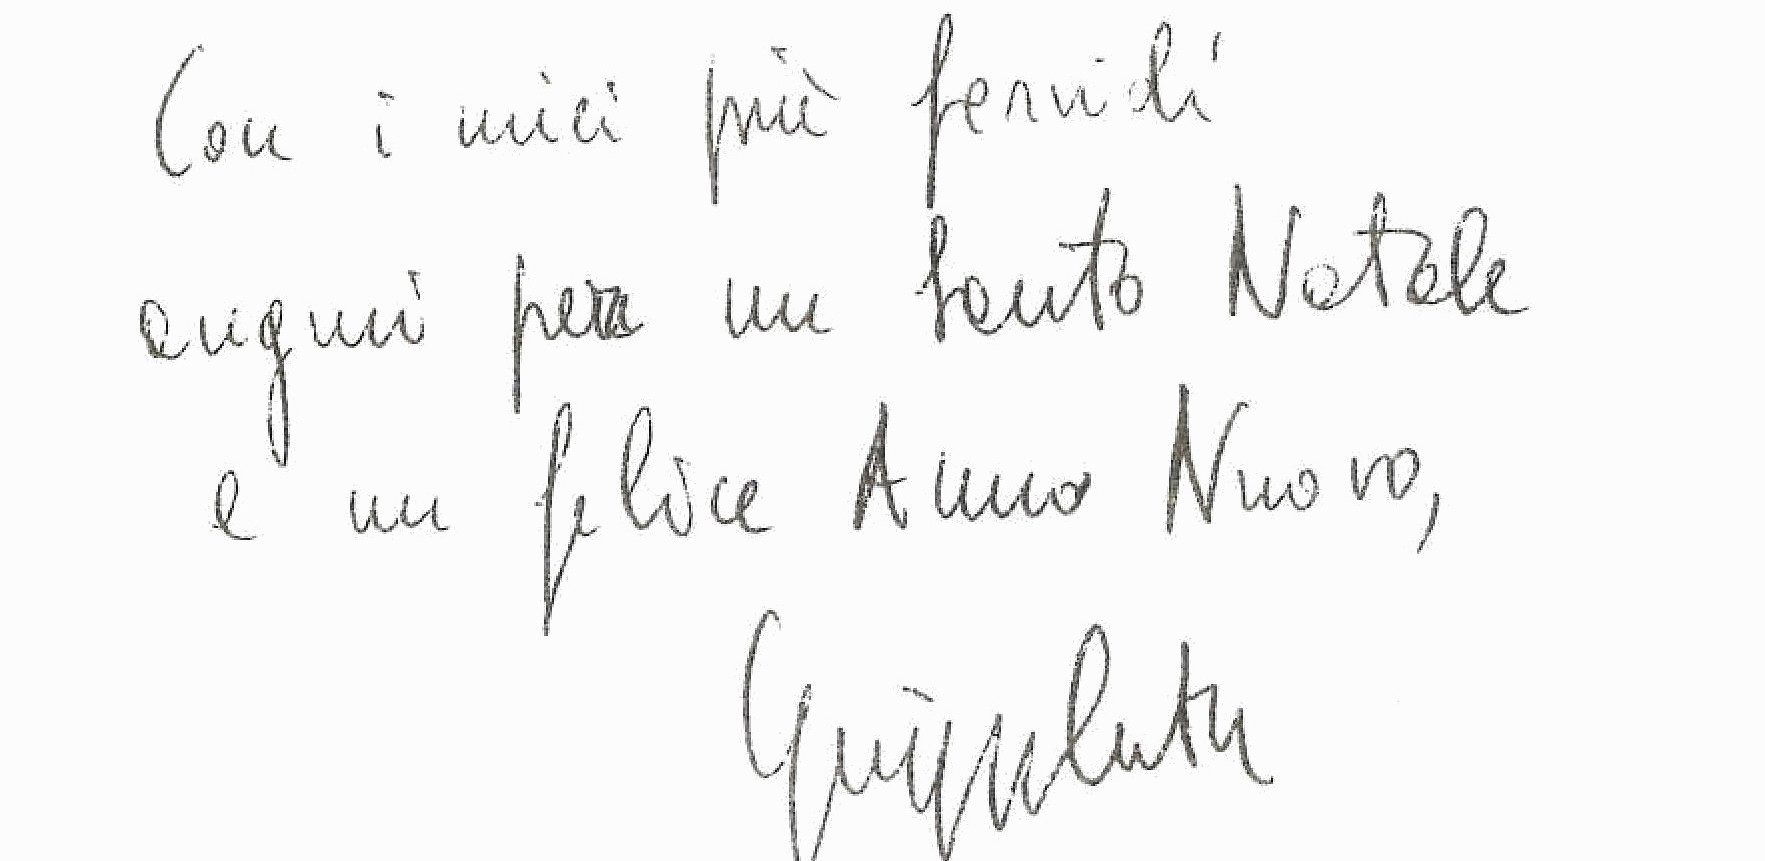 Con i miei più fervidi
auguri per un Santo Natale
e un felice Anno Nuovo,